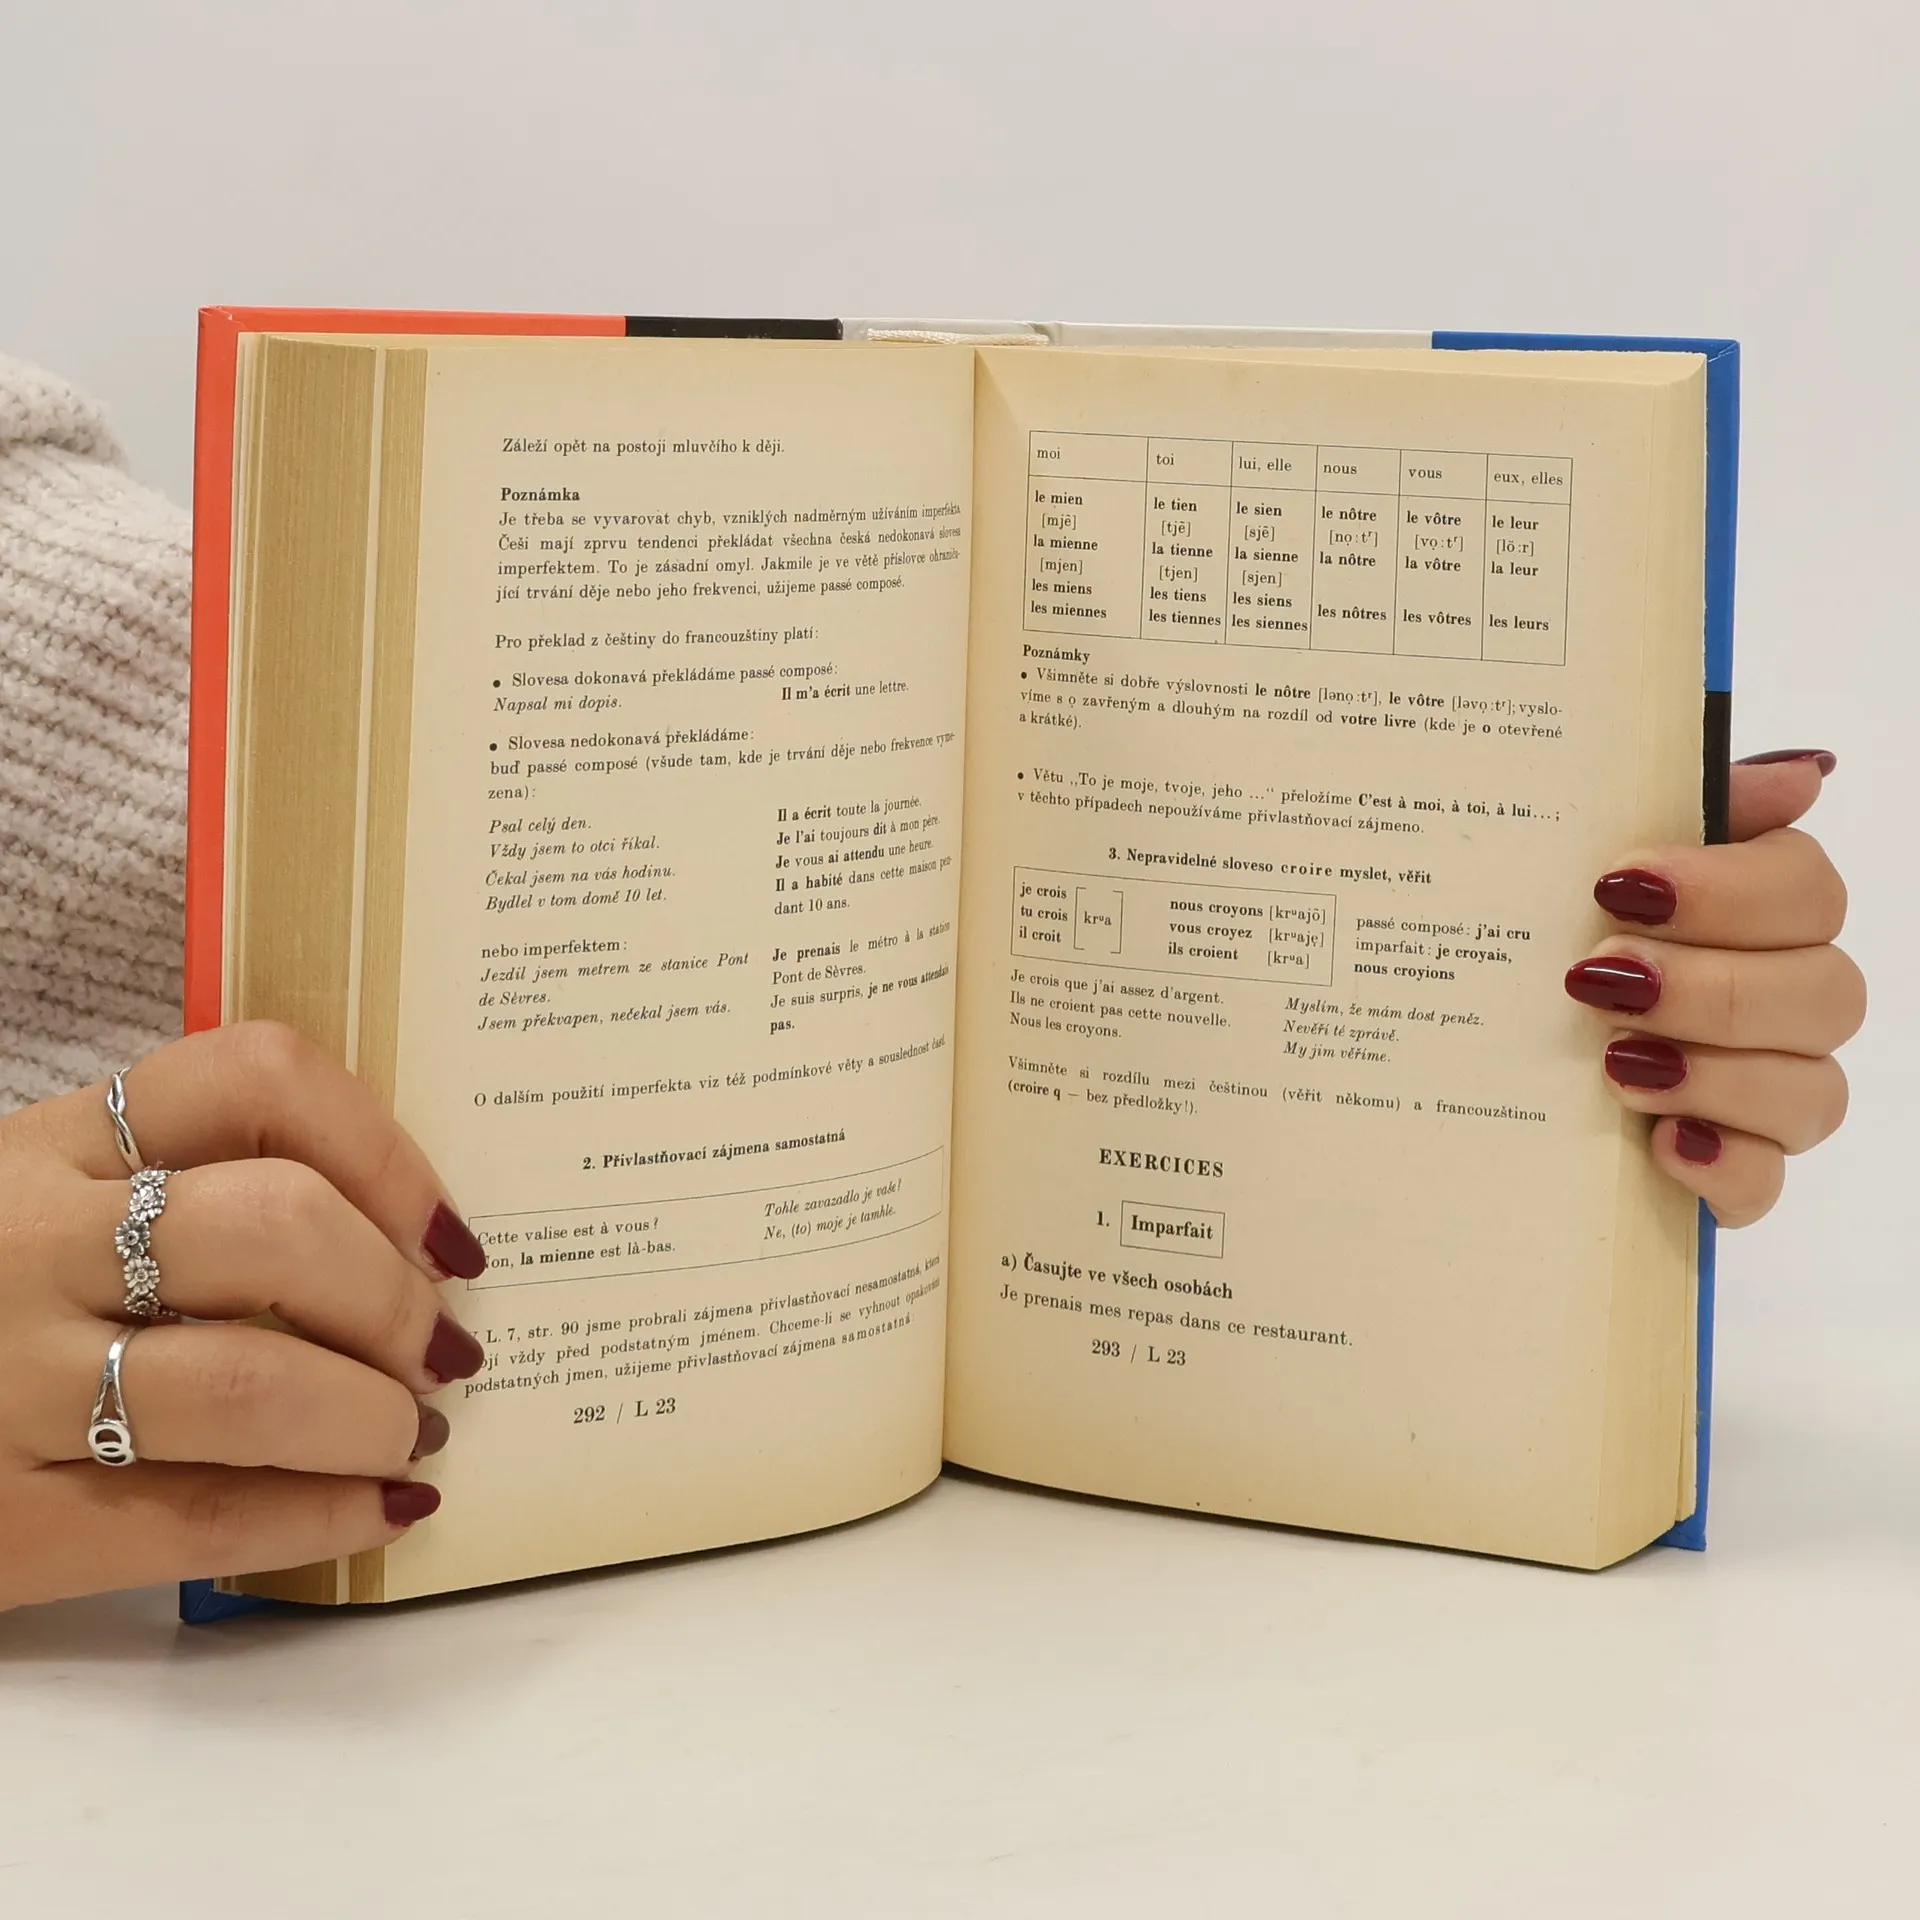 Záleží opět na postoji mluvčího k ději.
Poznámka
Je třeba se vyvarovat chyb, vzniklých nadměrným užíváním imperfekta.
Češi mají zprvu tendenci překládat všechna česká nedokonavá slovesa
imperfektem. To je zásadní omyl. Jakmile je ve větě příslovce ohraniču-
jící trvání děje nebo jeho frekvenci, užijeme passé composé.
Pro překlad z češtiny do francouzštiny platí:
• Slovesa dokonavá překládáme passé composé:
Napsal mi dopis. Il m'a écrit une lettre.
• Slovesa nedokonavá překládáme:
buď passé composé (všude tam, kde je trvání děje nebo frekvence vyme-
zena):
Psal celý den. Il a écrit toute la journée.
Vždy jsem to otci říkal. Je l'ai toujours dit à mon père.
Čekal jsem na vás hodinu. Je vous ai attendu une heure.
Bydlel v tom domě 10 let. Il a habité dans cette maison pen-
dant 10 ans.
nebo imperfektem:
Jezdil jsem metrem ze stanice Pont Je prenais le métro à la station
de Sèvres. Pont de Sèvres.
Jsem překvapen, nečekal jsem vás. Je suis surpris, je ne vous attendais
pas.
O dalším použití imperfekta viz též podmínkové věty a souslednost časů.
2. Přivlastňovací zájmena samostatná
Cette valise est à vous? Tohle zavazadlo je vaše?
Non, la mienne est là-bas. Ne, (to) moje je tamhle.
L. 7, str. 90 jsme probrali zájmena přivlastňovací nesamostatná, která
vždy před podstatným jménem. Chceme-li se vyhnout opakování
podstatných jmen, užijeme přivlastňovací zájmena samostatná:
292 / L 23
moi toi lui, elle nous vous eux, elles
le mien le tien le sien le nôtre le vôtre le leur
[mjẽ] [tjẽ] [sjẽ] [nọ:tʳ] [vọ:tʳ] [lö:r]
la mienne la tienne la sienne la nôtre la vôtre la leur
[mjen] [tjen] [sjen]
les miens les tiens les siens les nôtres les vôtres les leurs
les miennes les tiennes les siennes
Poznámky
• Všimněte si dobře výslovnosti le nôtre [lənọ:tʳ], le vôtre [ləvọ:tʳ]; vyslo-
víme s ọ zavřeným a dlouhým na rozdíl od votre livre (kde je o otevřené
a krátké).
• Větu „To je moje, tvoje, jeho ...“ přeložíme C'est à moi, à toi, à lui...;
v těchto případech nepoužíváme přivlastňovací zájmeno.
3. Nepravidelné sloveso croire myslet, věřit
je crois nous croyons [krᵘajõ] passé composé: j'ai cru
tu crois [krᵘa] vous croyez [krᵘajẹ] imparfait: je croyais,
il croit ils croient [krᵘa] nous croyions
Je crois que j'ai assez d'argent. Myslím, že mám dost peněz.
Ils ne croient pas cette nouvelle. Nevěří té zprávě.
Nous les croyons. My jim věříme.
Všimněte si rozdílu mezi češtinou (věřit někomu) a francouzštinou
(croire q – bez předložky!).
EXERCICES
1. Imparfait
a) Časujte ve všech osobách
Je prenais mes repas dans ce restaurant.
293 / L 23